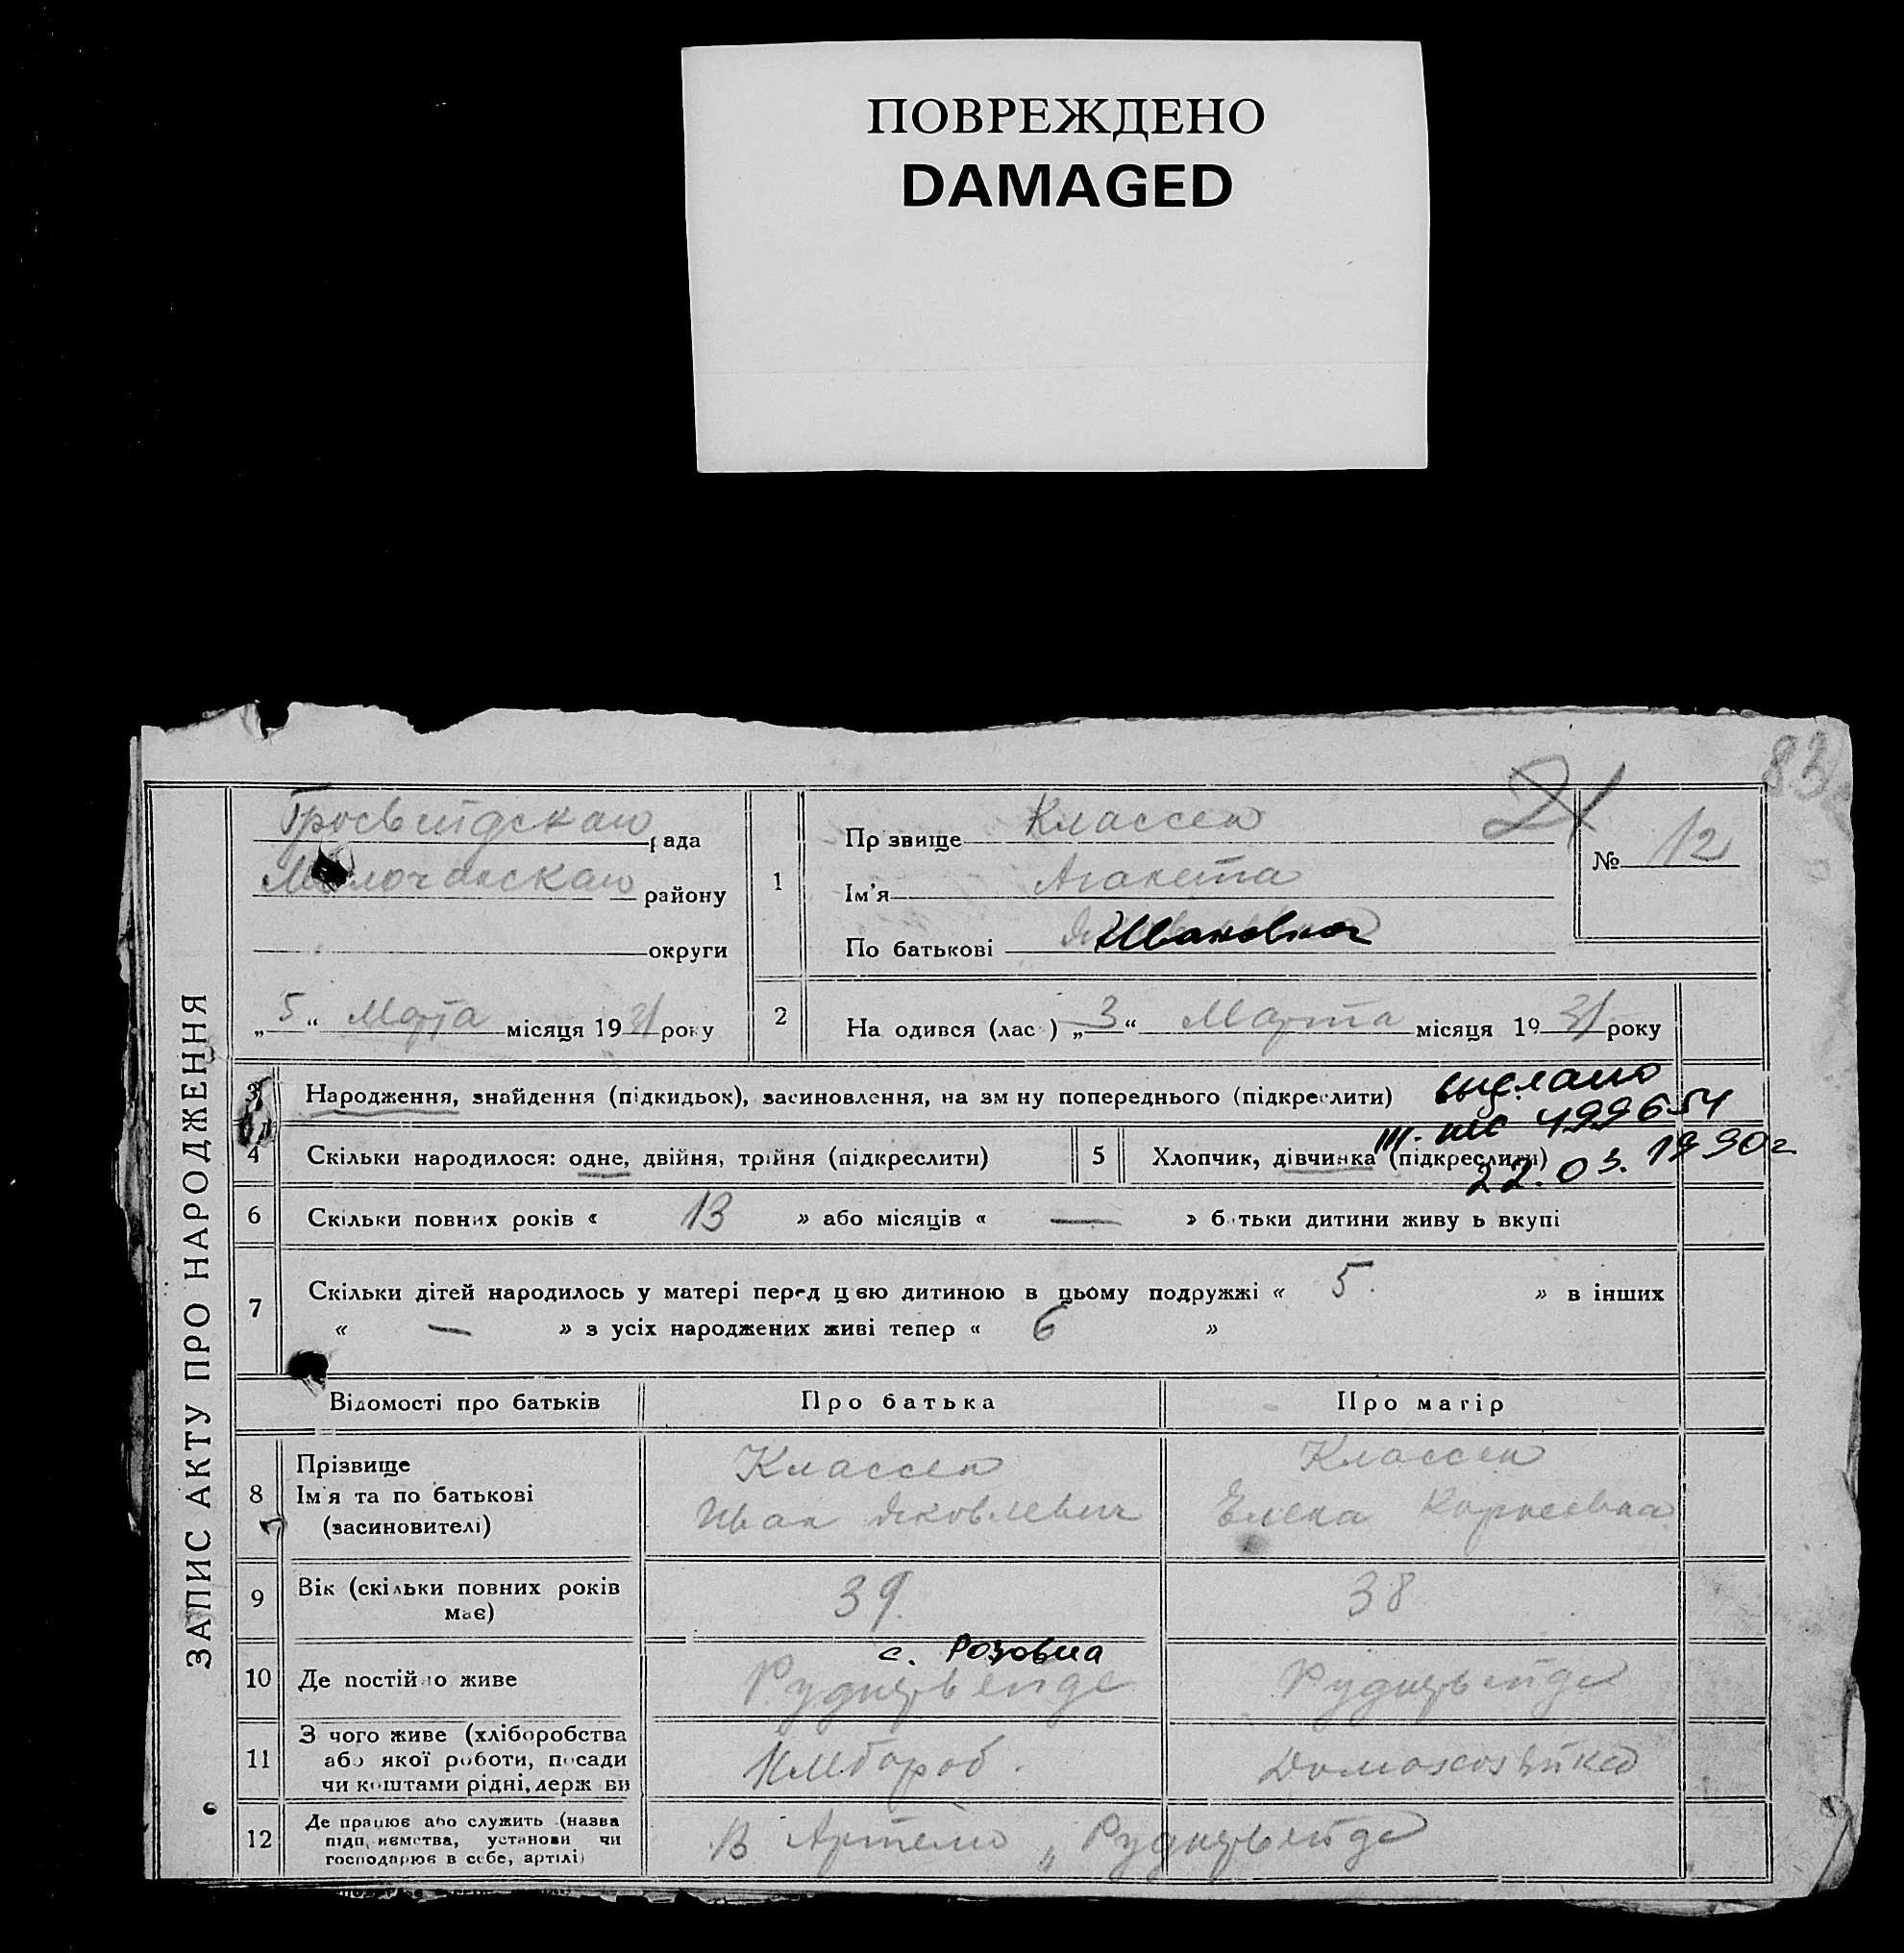 ПОВРЕЖДЕНО
DAMAGED
83
21
ЗАПИС АКТУ ПРО НАРОДЖЕННЯ
рада
района
району
округи
„5“ Марта місяця 1931 року
1
Прзвище Классен
Ім'я Аганета
По батькові Ивановна
№ 12
2
На одився (лас ) „3“ Марта місяця 1931 року
3
Народження, знайдення (підкидьок), засиновлення, на зм ну попереднього (підкреслити)
выслано
499654
22.03.1990г
4
Скільки народилося: одне, двійня, трійня (підкреслити)
5
Хлопчик, дівчинка (підкреслити)
6
Скільки повних років « 13 » або місяців « — » батьки дитини живу ь вкупі
7
Скільки дітей народилось у матері перед цєю дитиною в цьому подружжі « 5. » в інших
« — » з усіх народжених живі тепер « 6 »
Відомості про батьків
Про батька
Про матір
8
Прізвище
Ім'я та по батькові
(засиновителі)
Классен
Иван Яковлевич
Классен
Елена Корнеевна
9
Вік (скільки повних років
має)
39.
38
10
Де постійно живе
с. Розовка
Руднервейде
Руднервейде
11
З чого живе (хліборобства
або якої роботи, посади
чи коштами рідні, держ ви
Хлебороб.
Домохозяйка
12
Де працює або служить (назва
підп иємства, установи чи
господарює в себе, артілі)
В Артели „Руднервейде